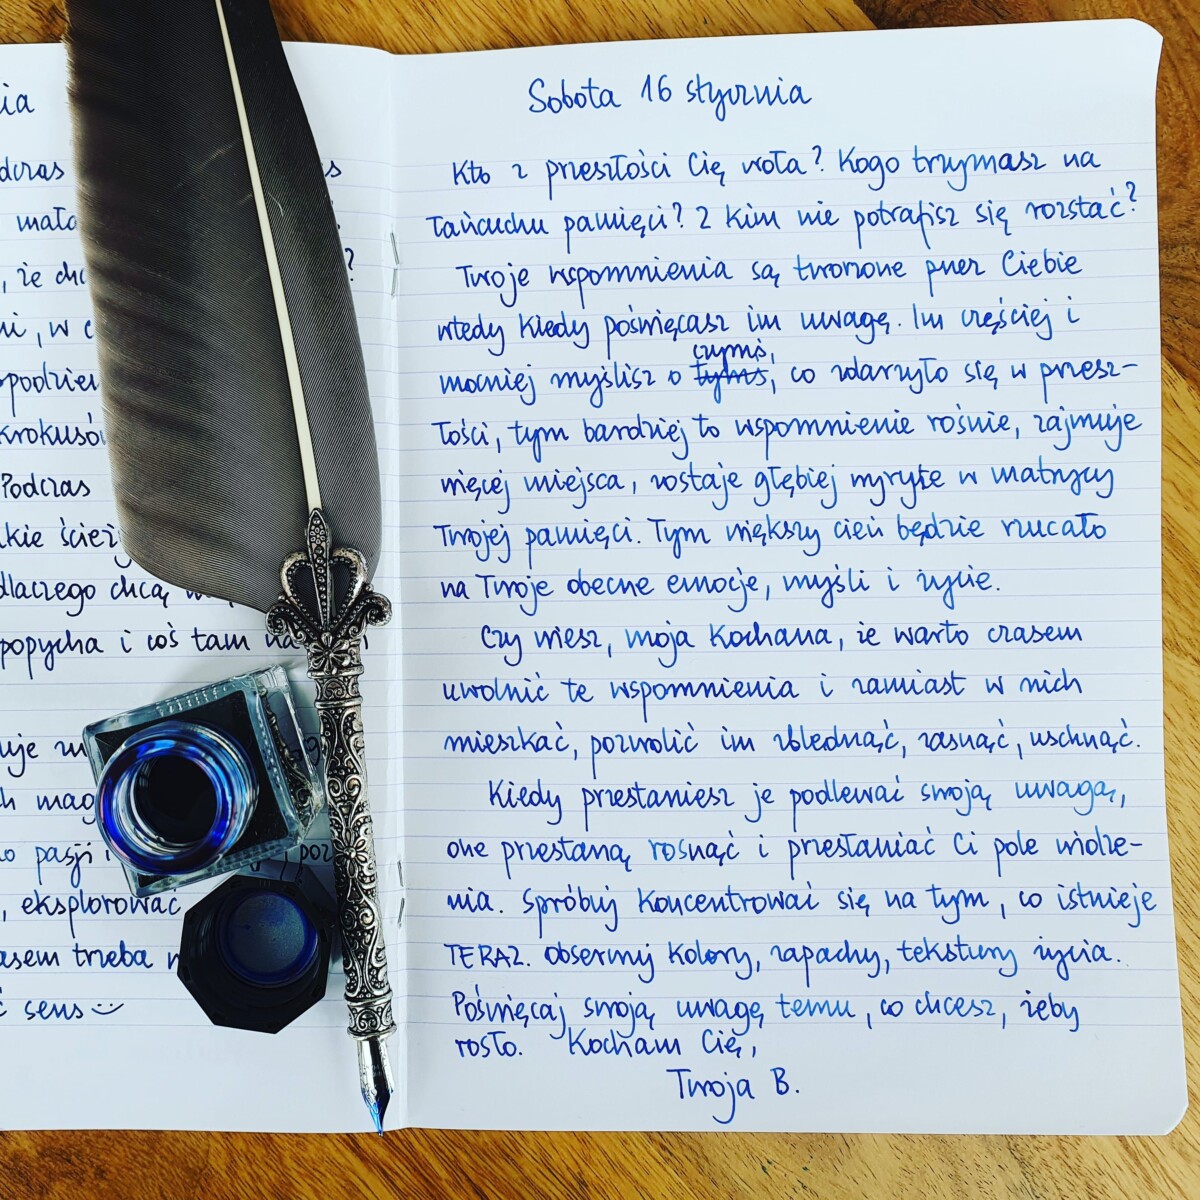 ia
dczas
s
mała
, że chc
?
ni, w c
podzie
krokusó
Podczas
kie ścież
dlaczego chcą
popycha i coś tam na
uje
h mag
o pasji i
, eksplorować
asem trzeba
ć sens :-)
Sobota 16 stycznia
Kto z przeszłości Cię woła? Kogo trzymasz na
łańcuchu pamięci? Z kim nie potrafisz się rozstać?
Twoje wspomnienia są tworzone przez Ciebie
wtedy kiedy poświęcasz im uwagę. Im częściej i
czymś,
mocniej myślisz o tymś, co zdarzyło się w przesz-
łości, tym bardziej to wspomnienie rośnie, zajmuje
więcej miejsca, zostaje głębiej wyryte w matrycy
Twojej pamięci. Tym większy cień będzie rzucało
na Twoje obecne emocje, myśli i życie.
Czy wiesz, moja Kochana, że warto czasem
uwolnić te wspomnienia i zamiast w nich
mieszkać, pozwolić im zblednąć, zasnąć, uschnąć.
Kiedy przestaniesz je podlewać swoją uwagą,
one przestaną rosnąć i przesłaniać Ci pole widze-
nia. Spróbuj koncentrować się na tym, co istnieje
TERAZ. Obserwuj kolory, zapachy, tekstury życia.
Poświęcaj swoją uwagę temu, co chcesz, żeby
rosło. Kocham Cię,
Twoja B.